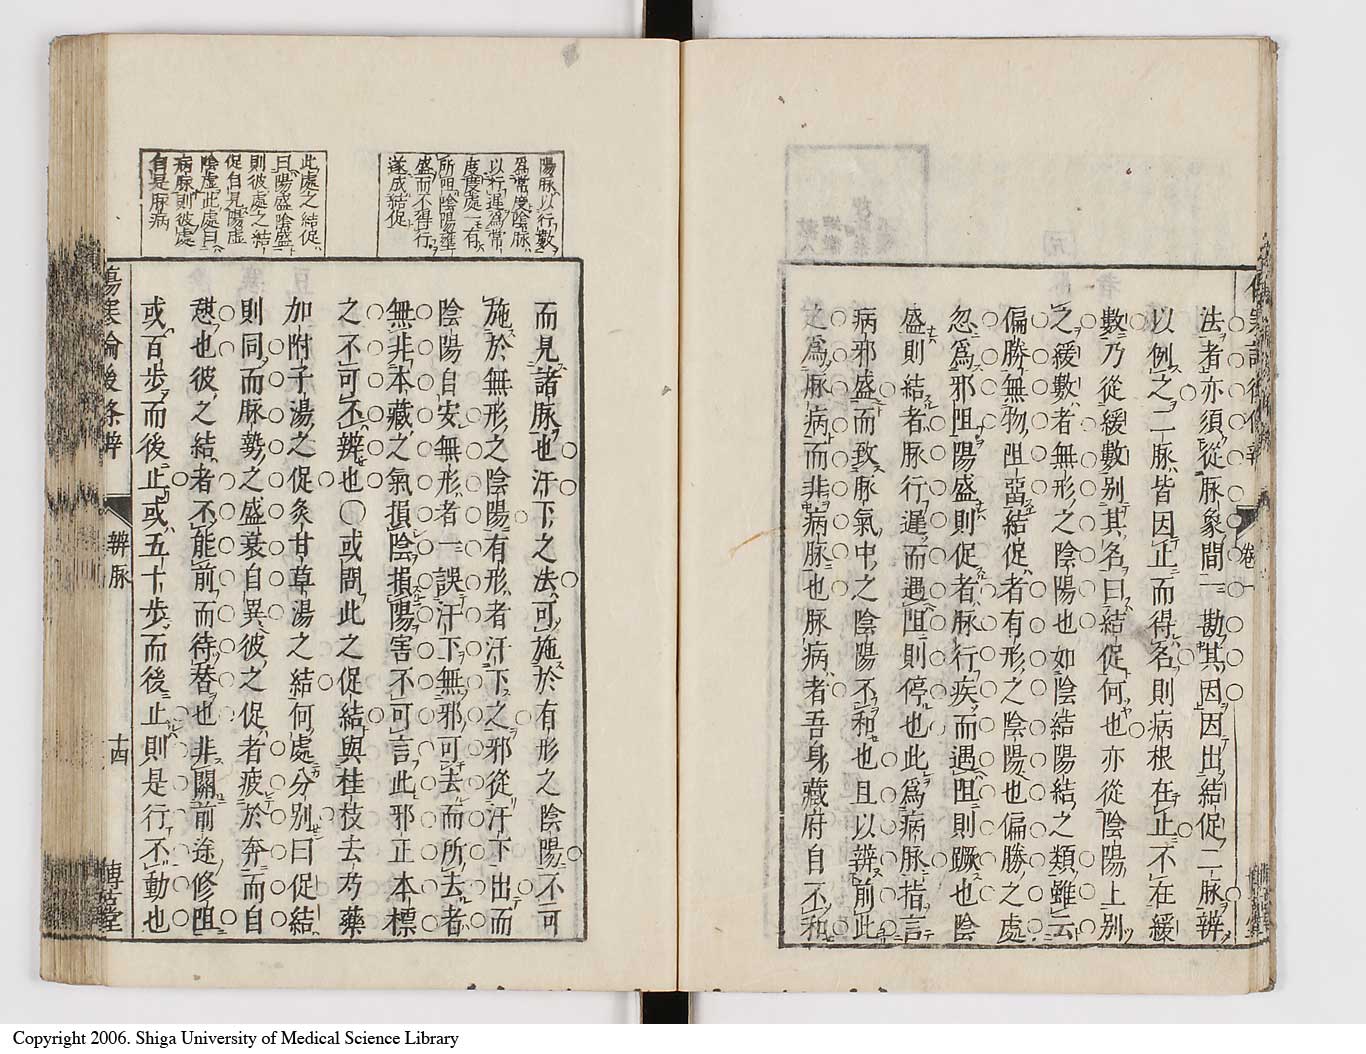 法者亦須從脉象間一勘其因因出結促二脉辨
以例之二脉皆因止而得名則病根在止不在緩
數乃從緩數別其名曰結促何也亦從陰陽上別
之緩數者無形之陰陽也如陰結陽結之類雖云
偏勝無物阻畱結促者有形之陰陽也偏勝之處
忽爲邪阻陽盛則促者脉行疾而遇阻則蹶也陰
盛則結者脉行遲而遇阻則停也此爲病脉指言
病邪盛而致脉氣中之陰陽不和也且以辨前此
之爲脉病而非病脉也脉病者吾身藏府自不和
陽脉以行數
爲常度陰脉
以行遲爲常
度度處一有
所阻陰陽壅
盛而不得行
遂成結促
此處之結促
曰陽盛陰盛
則彼處之結
促自見陽虛
陰虛此處曰
病脉則彼處
自是脉病
而見諸脉也汗下之法可施於有形之陰陽不可
施於無形之陰陽有形者汗下之邪從汗下出而
陰陽自安無形者一誤汗下無邪可去而所去者
無非本藏之氣損陰損陽害不可言此邪正本標
之不可不辨也〇或問此之促結與桂枝去芍藥
加附子湯之促灸甘草湯之結何處分別曰促結
則同而脉勢之盛衰自異彼之促者疲於奔而自
憩也彼之結者不能前而待替也非關前途修阻
或百步而後止或五十步而後止則是行不動也
傷寒論後条辨
辨脉
十四
博古堂
卷一
Copyright 2006. Shiga University of Medical Science Library